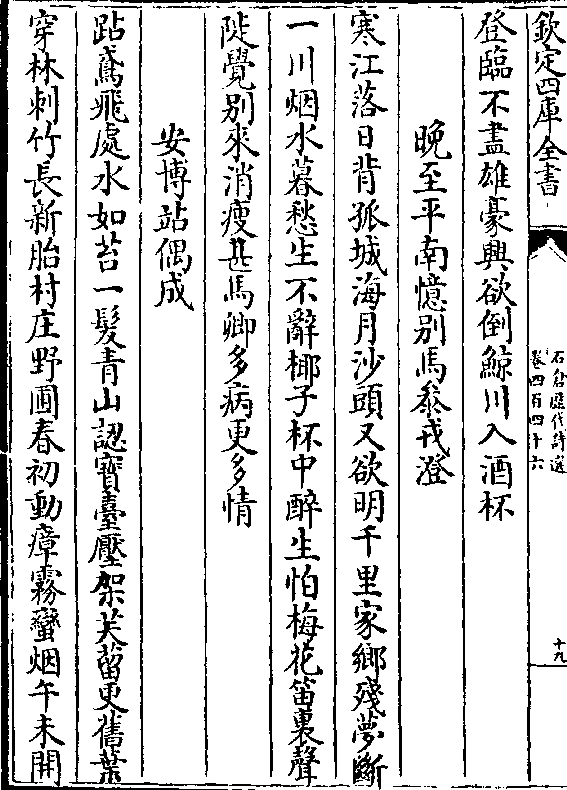 欽定四庫全書
石倉歷代詩選
卷四百四十六
十九
登臨不盡雄豪興欲倒鯨川入酒杯
晚至平南憶别馬叅戎澄
寒江落日背孤城海月沙頭又欲明千里家鄉殘夢斷
一川烟水暮愁生不辭椰子杯中醉生怕梅花笛裏聲
陡覺别來消瘦甚馬卿多病更多情
安博站偶成
跕鳶飛處水如苔一髮青山認寶臺壓架芙蒥更舊葉
穿林刺竹長新胎村庄野圃春初動瘴霧蠻烟午未開